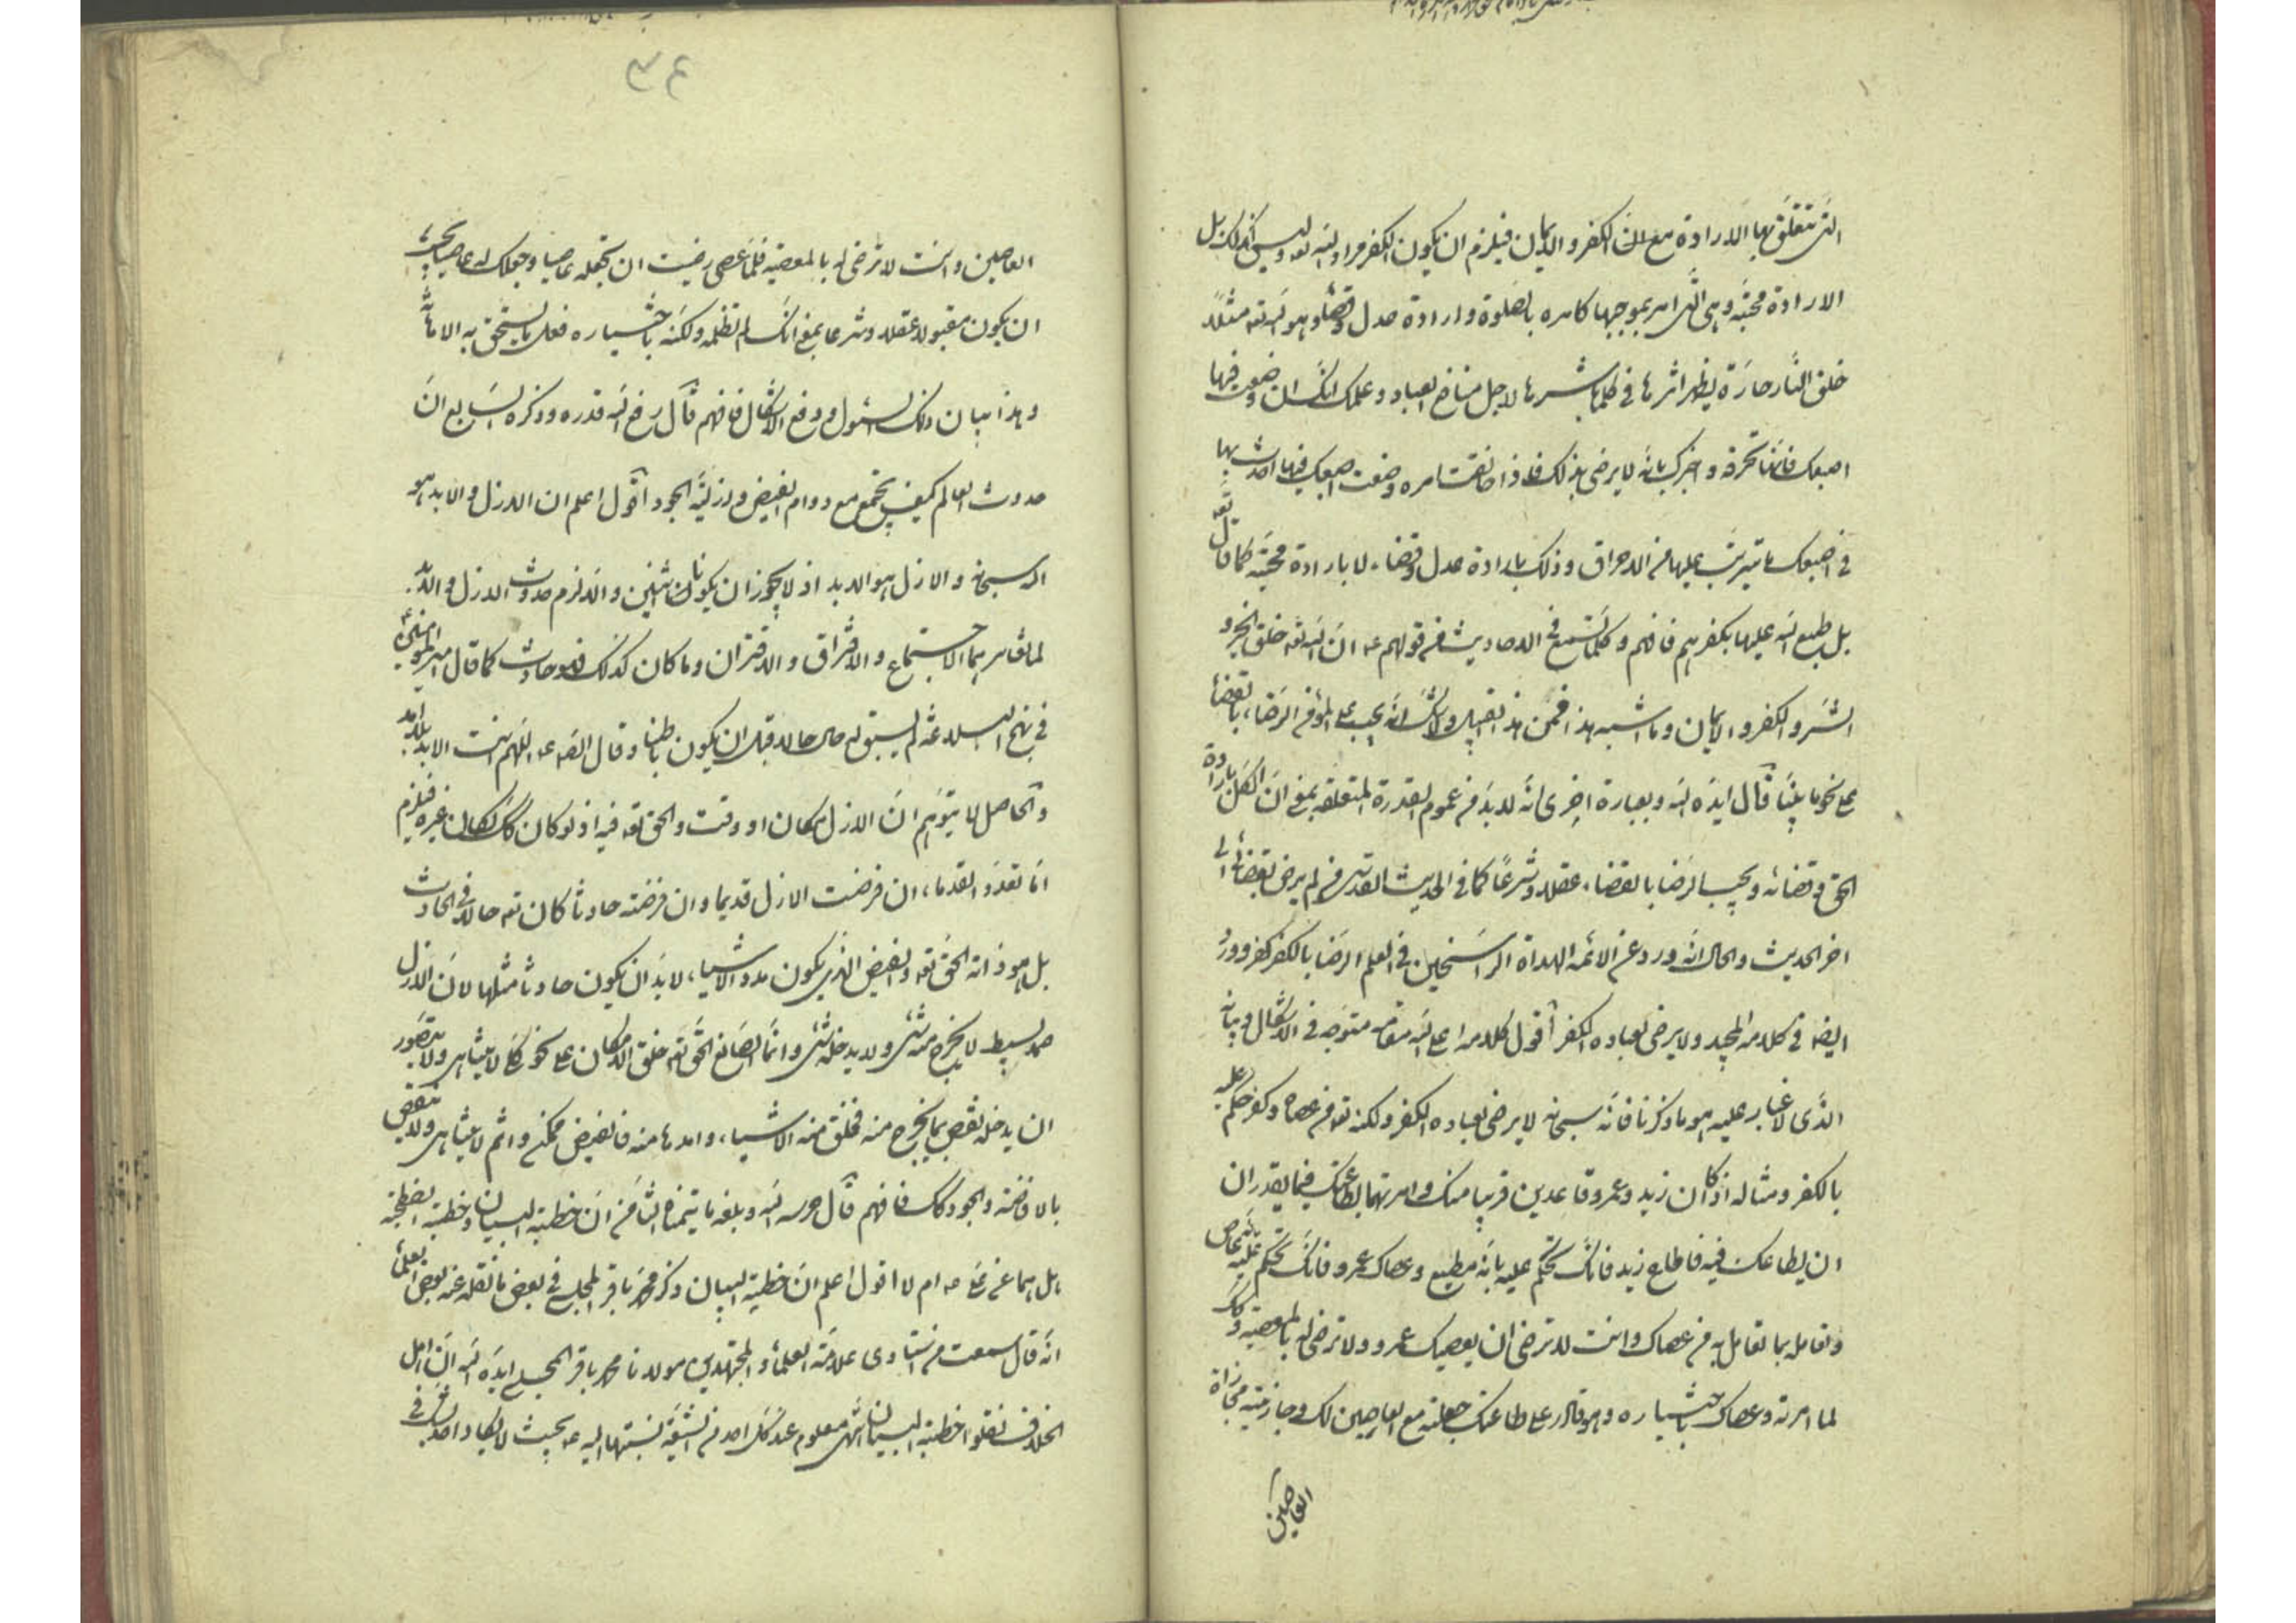 التى تتعلق بها الارادة مع ان الكفر والايمان فيلزم ان يكون الكفر مراد الله تعه وليس كذلك بل
الارادة محبة وهى التى امر بموجبها كامره بالصلوة وارادة عدل وقضاء وهو انه تعه مثلاً
خلق النار حارة يظهر اثرها فى كلما باشرها لاجل منافع العباد وعلمك انك ان وضعت فيها
اصبعك فانها تحرقه واخبرك بانه لا يرضى بذلك فاذا خالفت امره وضعت اصبعك فيها احدث بها
فى اصبعك ما يترتب عليها من الاحراق وذلك بارادة عدل وقضاء لا بارادة محبة كما قال تعه
بل طبع الله عليها بكفرهم فافهم وكلما تسمع فى الاحاديث من قولهم عه ان الله تعه خلق الخير و
الشر والكفر والايمان وما اشبه هذا فمن هذا القبيل ولا شك انه يجب على المؤمن الرضاء بالقضاء
على نحو ما بينا قال ايده الله وبعبارة اخرى انه لا بد من عموم القدرة المتعلقة بمعنى ان الكل بارادة
الحق وقضائه ويجب الرضا بالقضاء عقلا وشرعاً كما فى الحديث القدسى من لم يرض بقضائى الى
اخر الحديث والحال انه ورد عن الائمه الهداة الراسخين فى العلم الرضا بالكفر كفر وورد
ايضا فى كلامه المجيد ولا يرضى لعباده الكفر اقول كلامه اعلى الله مقامه متوجه فى الاشكال وبيانه
الذى لا غبار عليه هو ما ذكرنا فانه سبحانه لا يرضى لعباده الكفر ولكنه تعه من عصاه وكفر حكم عليه
بالكفر ومثاله اذا كان زيد وعمرو قاعدين قريبا منك وامرتهما بطاعتك فيما يقدران
ان يطاعك فيه فاطاع زيد فانك تحكم عليه بانه مطيع وعصاك عمرو فانك تحكم عليه بانه عاص
وتعامله بما تعامل به من عصاك وانت لا ترضى ان يعصيك عمرو ولا ترضى له بالمعصية وكك
لما امرته وعصاك باختياره وهو قادر على طاعتك جعلته مع العاصين لك وجازيته مجازاة
العاصين
٣٤
العاصين وانت لا ترضى له بالمعصية فلما عصى رضيت ان تجعله عاصيا وجعلك له عاصيا يجب
ان يكون مقبولا عقلا وشرعا بمعنى انك لم تظلمه ولكنه باختياره فعل ما يستحق به الاهانة
وهذا بيان ذلك السئول ودفع الاشكال فافهم قال رفع الله قدره وذكره السابع ان
حدوث العالم كيف يجتمع مع دوام الفيض وازلية الجود اقول اعلم ان الازل والابد هو
الله سبحانه والازل هو الابد اذ لا يجوز ان يكونا اثنين والا لزم حدوث الازل والابد
لما قام بهما الاجتماع والافتراق والاقتران وما كان كذلك فهو حادث كما قال امير المؤمنين ع
فى نهج البلاغه لم يسبق له حال حالا قبل ان يكون باطنا وقال الصه عه اللهم انت الابد بلا امد
والحاصل لا يتوهم ان الازل مكان او وقت والحق تعه فيه اذ لو كان كك لكان غيره فيلزم
اما تعدد القدماء ان فرضت الازل قديما وان فرضته حادثا كان تعه حالا فى الحادث
بل هو ذاته الحق تعه والفيض الذى يكون مدد الاشياء لا بد ان يكون حادثا مثلها لان الازل
صمد بسيط لا يخرج منه شئ ولا يدخله شئ وانما الصانع الحق تعه خلق الامكان على نحو كلى لا يتناهى ولا يتصور
ان يدخله نقص بما يخرج منه فخلق منه الاشياء وامدها منه فالفيض ممكن دائم لا يتناهى ولا ينقص
بالافاضة والجود كك فافهم قال حرسه الله وبلغه ما يتمناه الثامن ان خطبة البيان وخطبة الططنجية
هل هما عن على عه ام لا اقول اعلم ان خطبة البيان ذكر محمد باقر المجلسى فى بعض ما نقله عنه بعض العلماء
انه قال سمعت من استادى علامة العلماء والمجتهدين مولانا محمد باقر المجلسى ايده الله ان اهل
الخلاف نقلوا خطبة البيان انتهى معلوم عند كل احد من الشيعة نسبتها اليه عه بحيث لا يكاد احد يشك فى